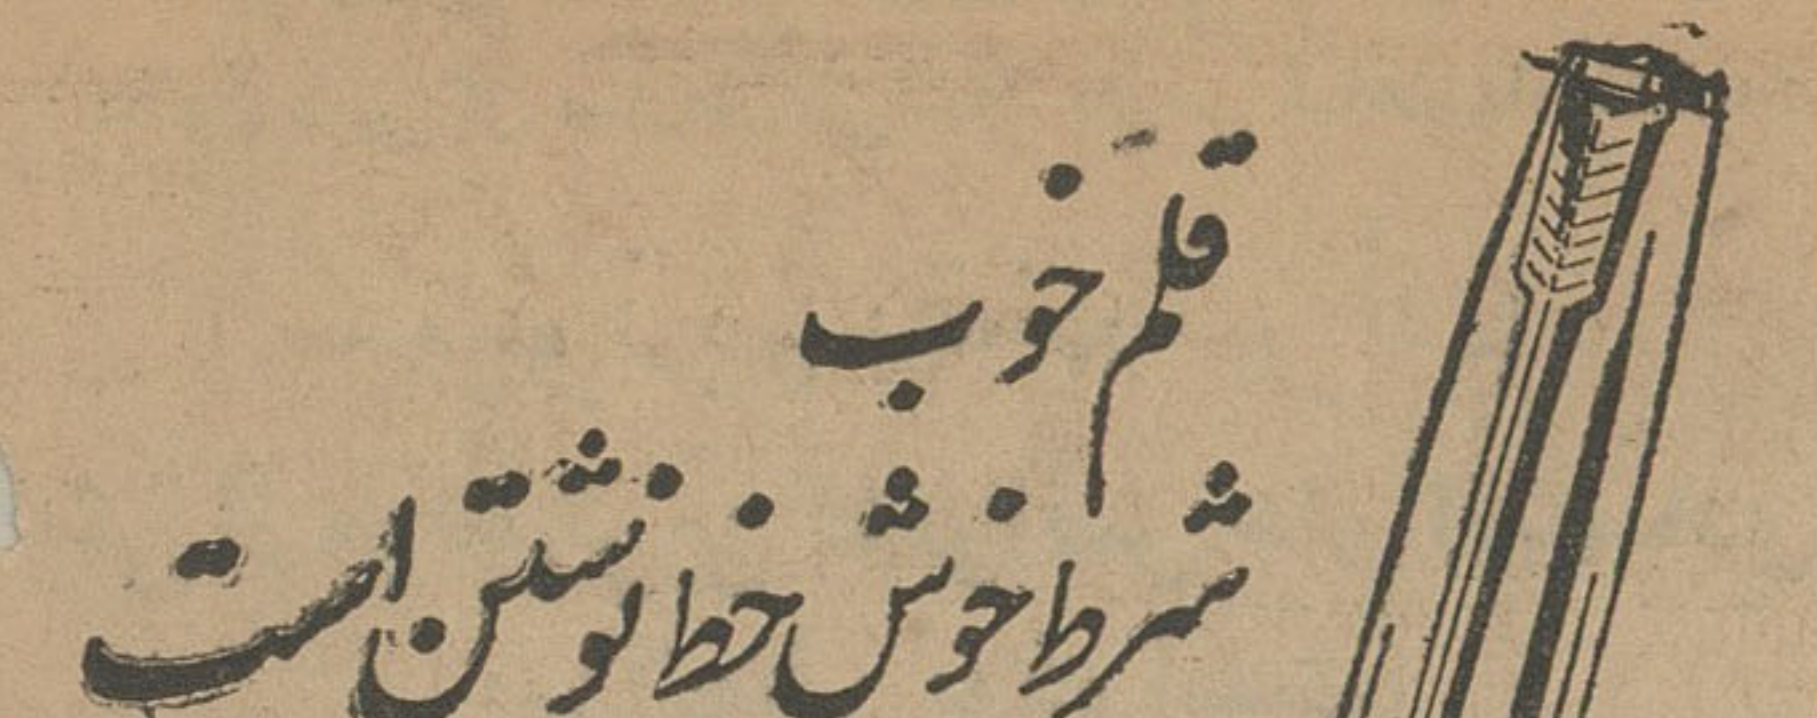 قلم خوب
شرط خوش خط نوشتن است